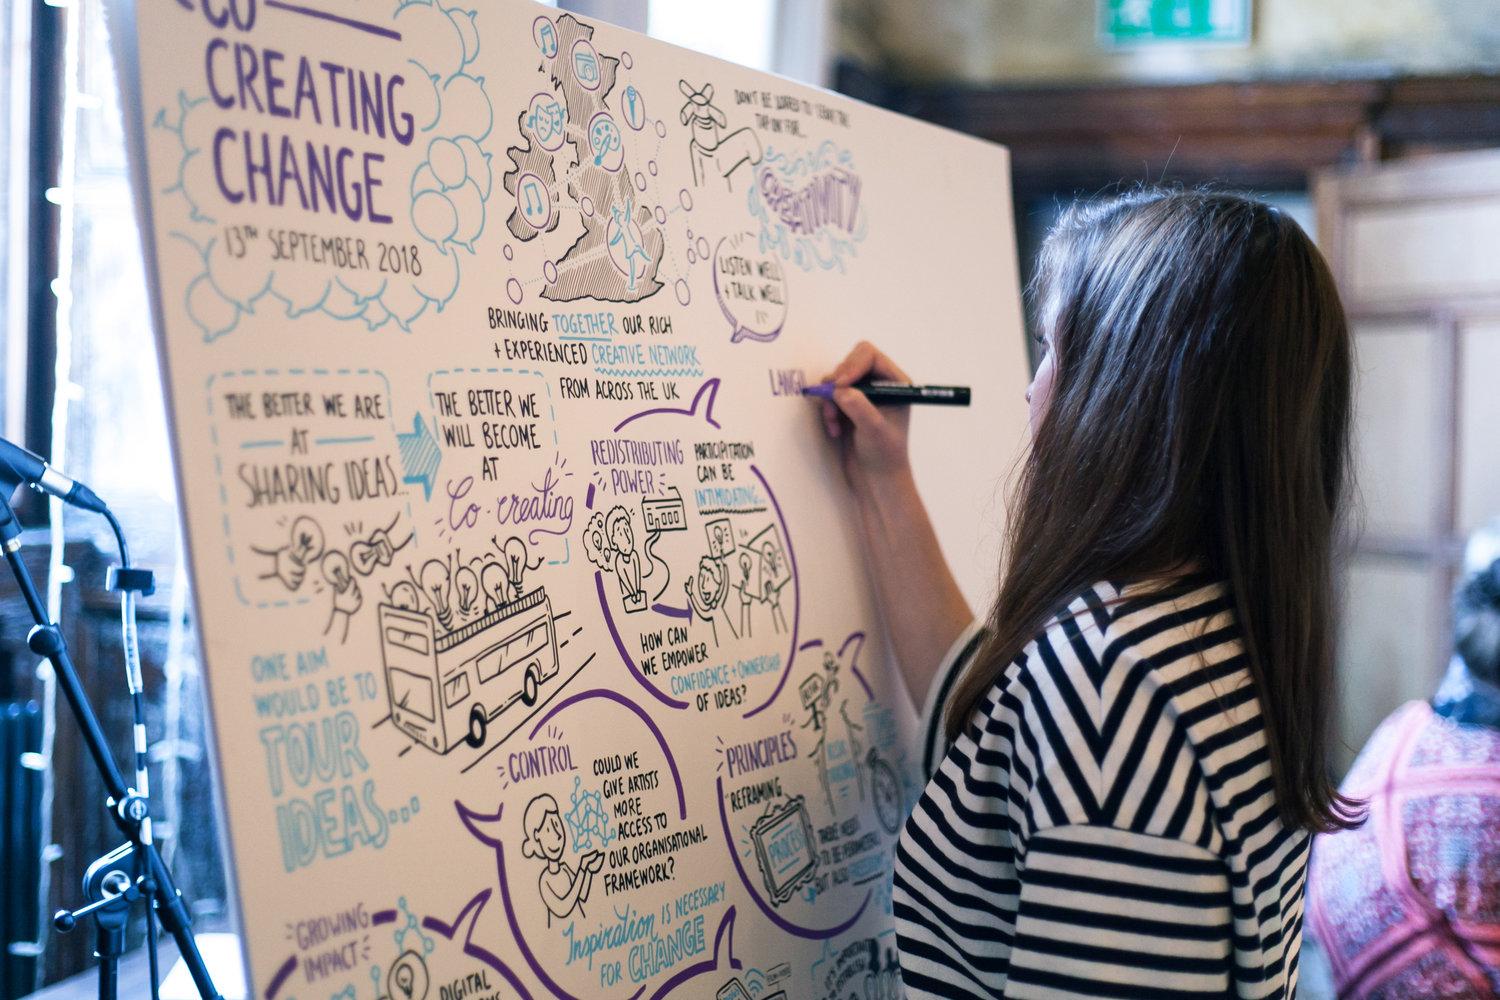 CO
CREATING
CHANGE
13TH SEPTEMBER 2018
BRINGING TOGETHER OUR RICH
+ EXPERIENCED CREATIVE NETWORK
FROM ACROSS THE UK
DON'T BE SCARED TO LEAVE THE
TAP ON FOR...
CREATIVITY
LISTEN WELL
+ TALK WELL
LANGU
THE BETTER WE ARE
AT
SHARING IDEAS...
THE BETTER WE
WILL BECOME
AT
Co-creating
ONE AIM
WOULD BE TO
TOUR
IDEAS...
REDISTRIBUTING
POWER
PARTICIPATION
CAN BE
INTIMIDATING...
HOW CAN
WE EMPOWER
CONFIDENCE + OWNERSHIP
OF IDEAS?
CONTROL
COULD WE
GIVE ARTISTS
MORE
ACCESS TO
OUR ORGANISATIONAL
FRAMEWORK?
Inspiration IS NECESSARY
FOR CHANGE
PRINCIPLES
REFRAMING
PROCESS
TO BE
BUT ALSO
GROWING
IMPACT
DIGITAL